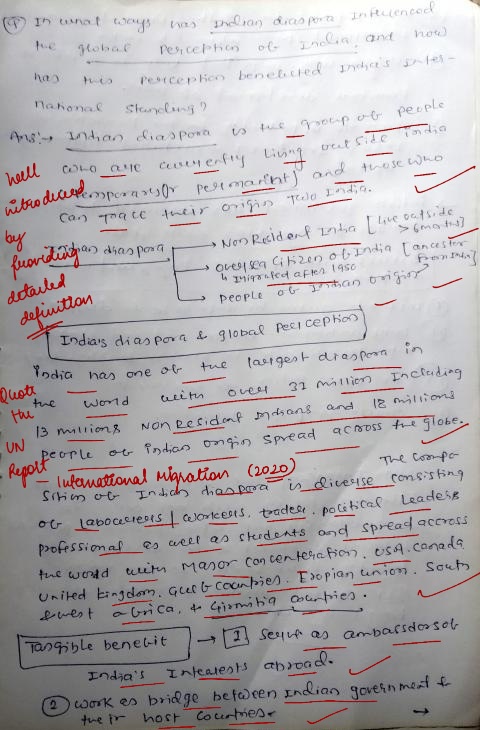 Q In what ways has Indian diaspora Influenced
the global Perception of India and how
has this Perception benefited India's Inter-
national Standing?
Ans:→ Indian diaspora is the group of people
who are currently living outside India
temporary (or permanent) and those who
can trace their origin two India.
Well
introduced
by
providing
detailed
definition
Indian diaspora
→ Non Resident India [live outside > 6 months]
→ oversea Citizen of India [ancester from India]
↳ Imigrated after 1950
→ people of Indian origin
India's diaspora & global Perception
India has one of the largest diaspora in
the world with over 32 million Including
13 millions Non Resident Indians and 18 millions
people of indian origin spread across the globe.
Quote
the
UN
Report - International Migration (2020)
The compo
sition of Indian diaspora is diverse consisting
of labourers / workers, trader, political leaders
professional as well as students and spread accross
the world with Major concenteration. USA. Canada
United kingdom. Gulf Countries. Eropian union. South
& west africa, & Girmitia countries.
Tangible benefit → 1 Serve as ambassdors of
India's Interests abroad.
2 work as bridge between Indian government &
their host Countries.
→